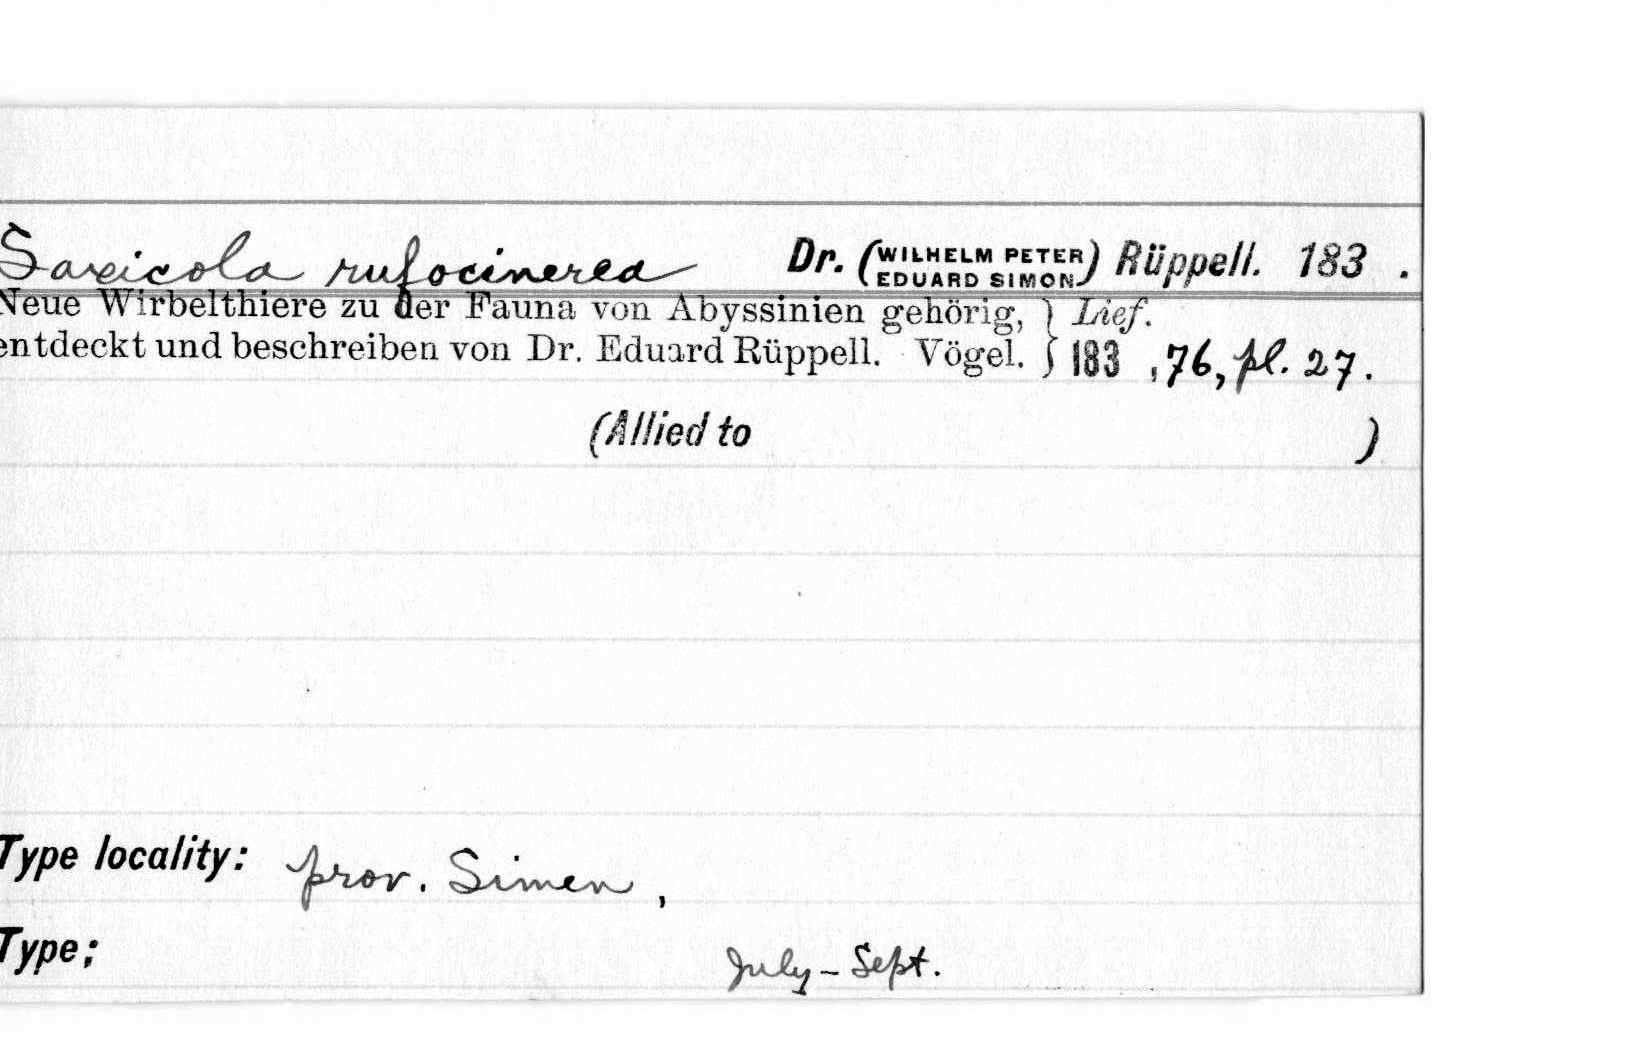 Saxicola rufocinerea Dr. (WILHELM PETER EDUARD SIMON) Rüppell. 183 .
Neue Wirbelthiere zu der Fauna von Abyssinien gehörig, } Lief.
entdeckt und beschreiben von Dr. Eduard Rüppell. Vögel. } 183 , 76, pl. 27.
(Allied to )
Type locality: prov. Simen ,
Type; July - Sept.